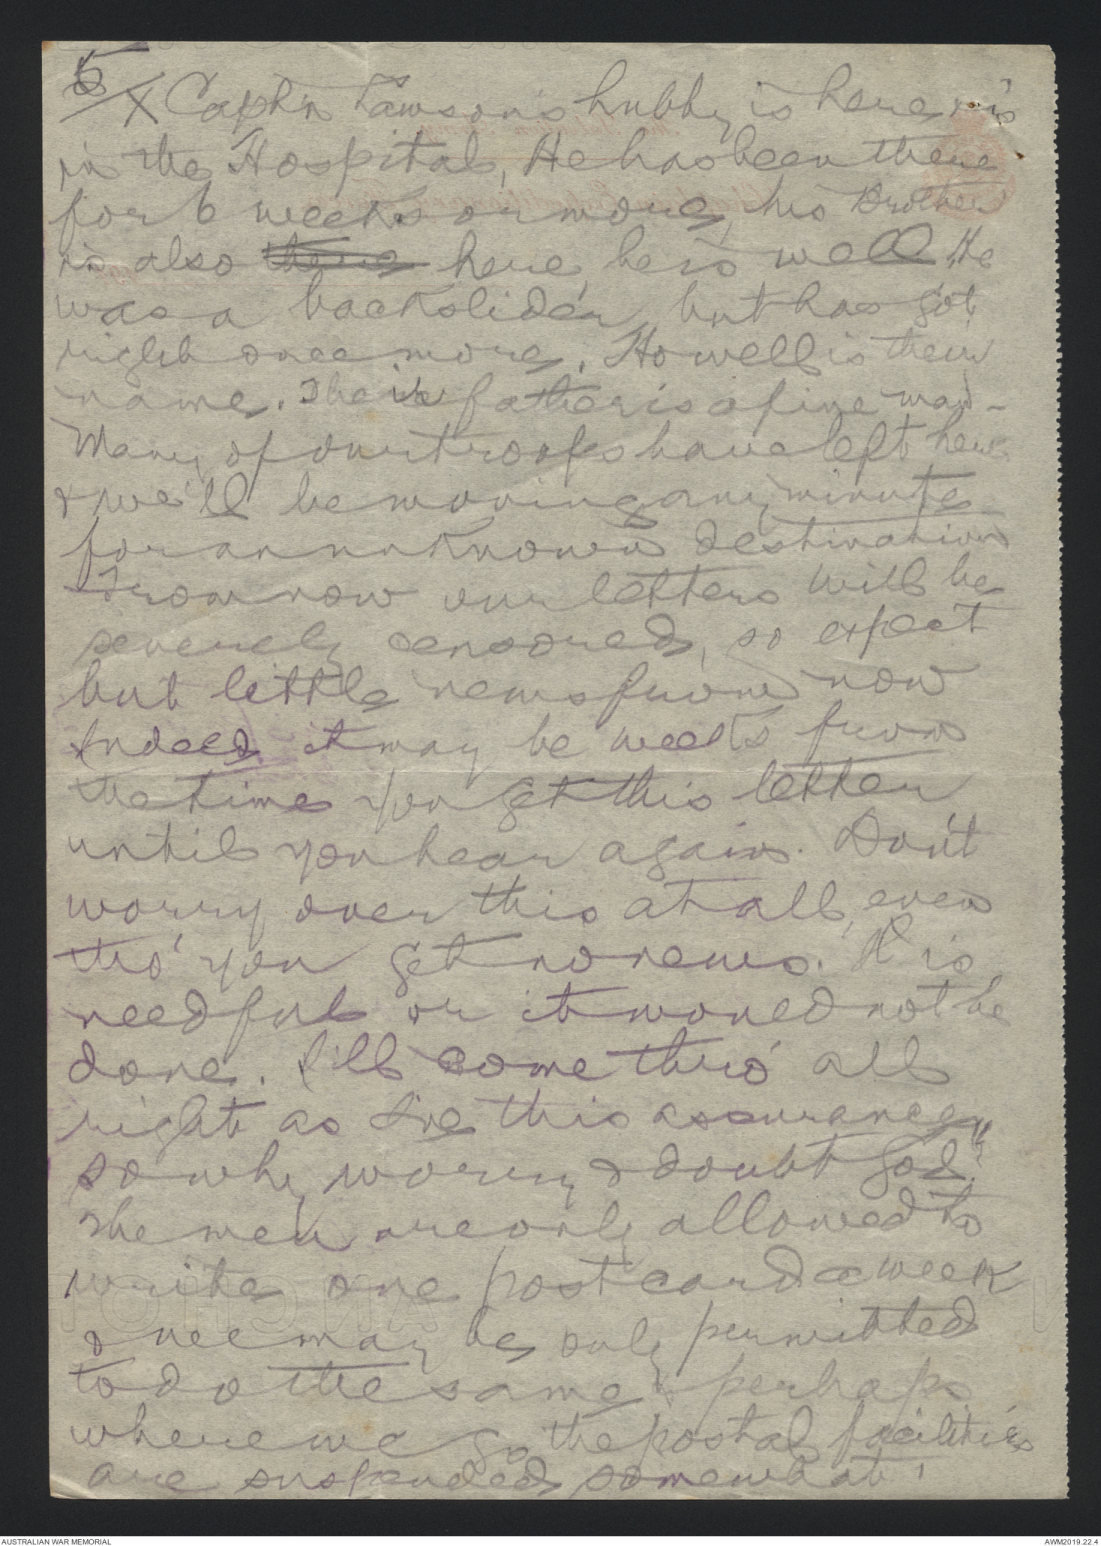 5/
X Capt'n Lawson's hubby is here, is
in the Hospital, He has been there
for 6 weeks or more, his Brother
is also there here, he is well He
was a backslider, but has got
right once more. Howell is their
name. Their father is a fine man -
Many of our troops have left here
& we'll be moving any minute
for an unknown destination
From now our letters will be
severely censored, so expect
but little news from now
Indeed it may be weeks from
the time you get this letter
until you hear again. Don't
worry over this at all, even
tho' you get no news. It is
needful or it would not be
done. I'll come thro' all
right as I've this assurance,
so why worry & doubt God"?
The men are only allowed to
write one post card a week
& we may be only permitted
to do the same & perhaps
where we go the postal facilities
are suspended somewhat!
ANCHOR
AUSTRALIAN WAR MEMORIAL
AWM2019.22.4